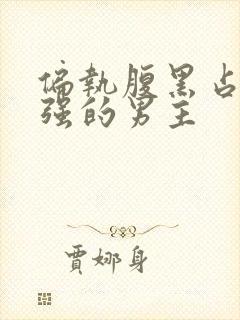 偏執腹黑占
強的男主
賈娜身